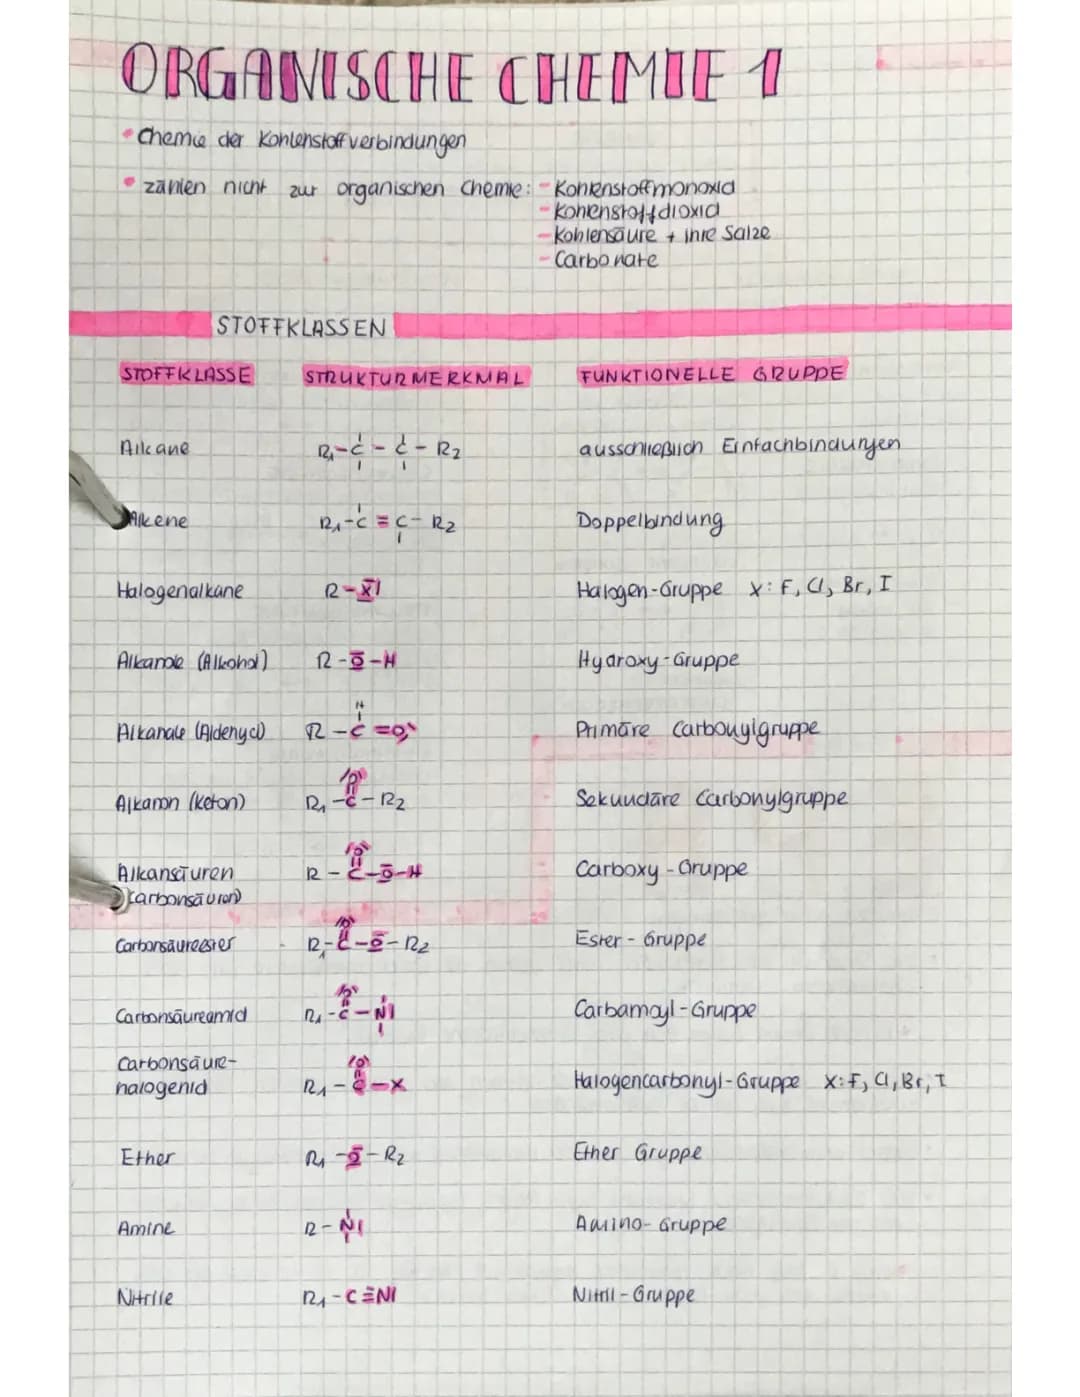 ORGANISCHE CHEMIE 1
• Chemie der Kohlenstoffverbindungen
• zählen nicht zur organischen Chemie: - Kohlenstoffmonoxid
- Kohlenstoffdioxid
- Kohlensäure + ihre Salze
- Carbonate
STOFFKLASSEN
STOFFKLASSE STRUKTURMERKMAL FUNKTIONELLE GRUPPE
Alkane R₁-C-C-R₂ ausschließlich Einfachbindungen
Alkene R₁-C=C-R₂ Doppelbindung
Halogenalkane R-X| Halogen-Gruppe X: F, Cl, Br, I
Alkanole (Alkohol) R-O-H Hydroxy-Gruppe
H
Alkanale (Aldehyd) R-C=O Primäre Carbonylgruppe
O
Alkanon (Keton) R₁-C-R₂ Sekundäre Carbonylgruppe
O
Alkansäuren R-C-O-H Carboxy-Gruppe
(Carbonsäuren)
O
Carbonsäureester R₁-C-O-R₂ Ester-Gruppe
O
Carbonsäureamid R₁-C-N| Carbamoyl-Gruppe
Carbonsäure- O
halogenid R₁-C-X Halogencarbonyl-Gruppe X: F, Cl, Br, I
Ether R₁-O-R₂ Ether Gruppe
Amine R-N| Amino-Gruppe
Nitrile R₁-C≡N| Nitril-Gruppe